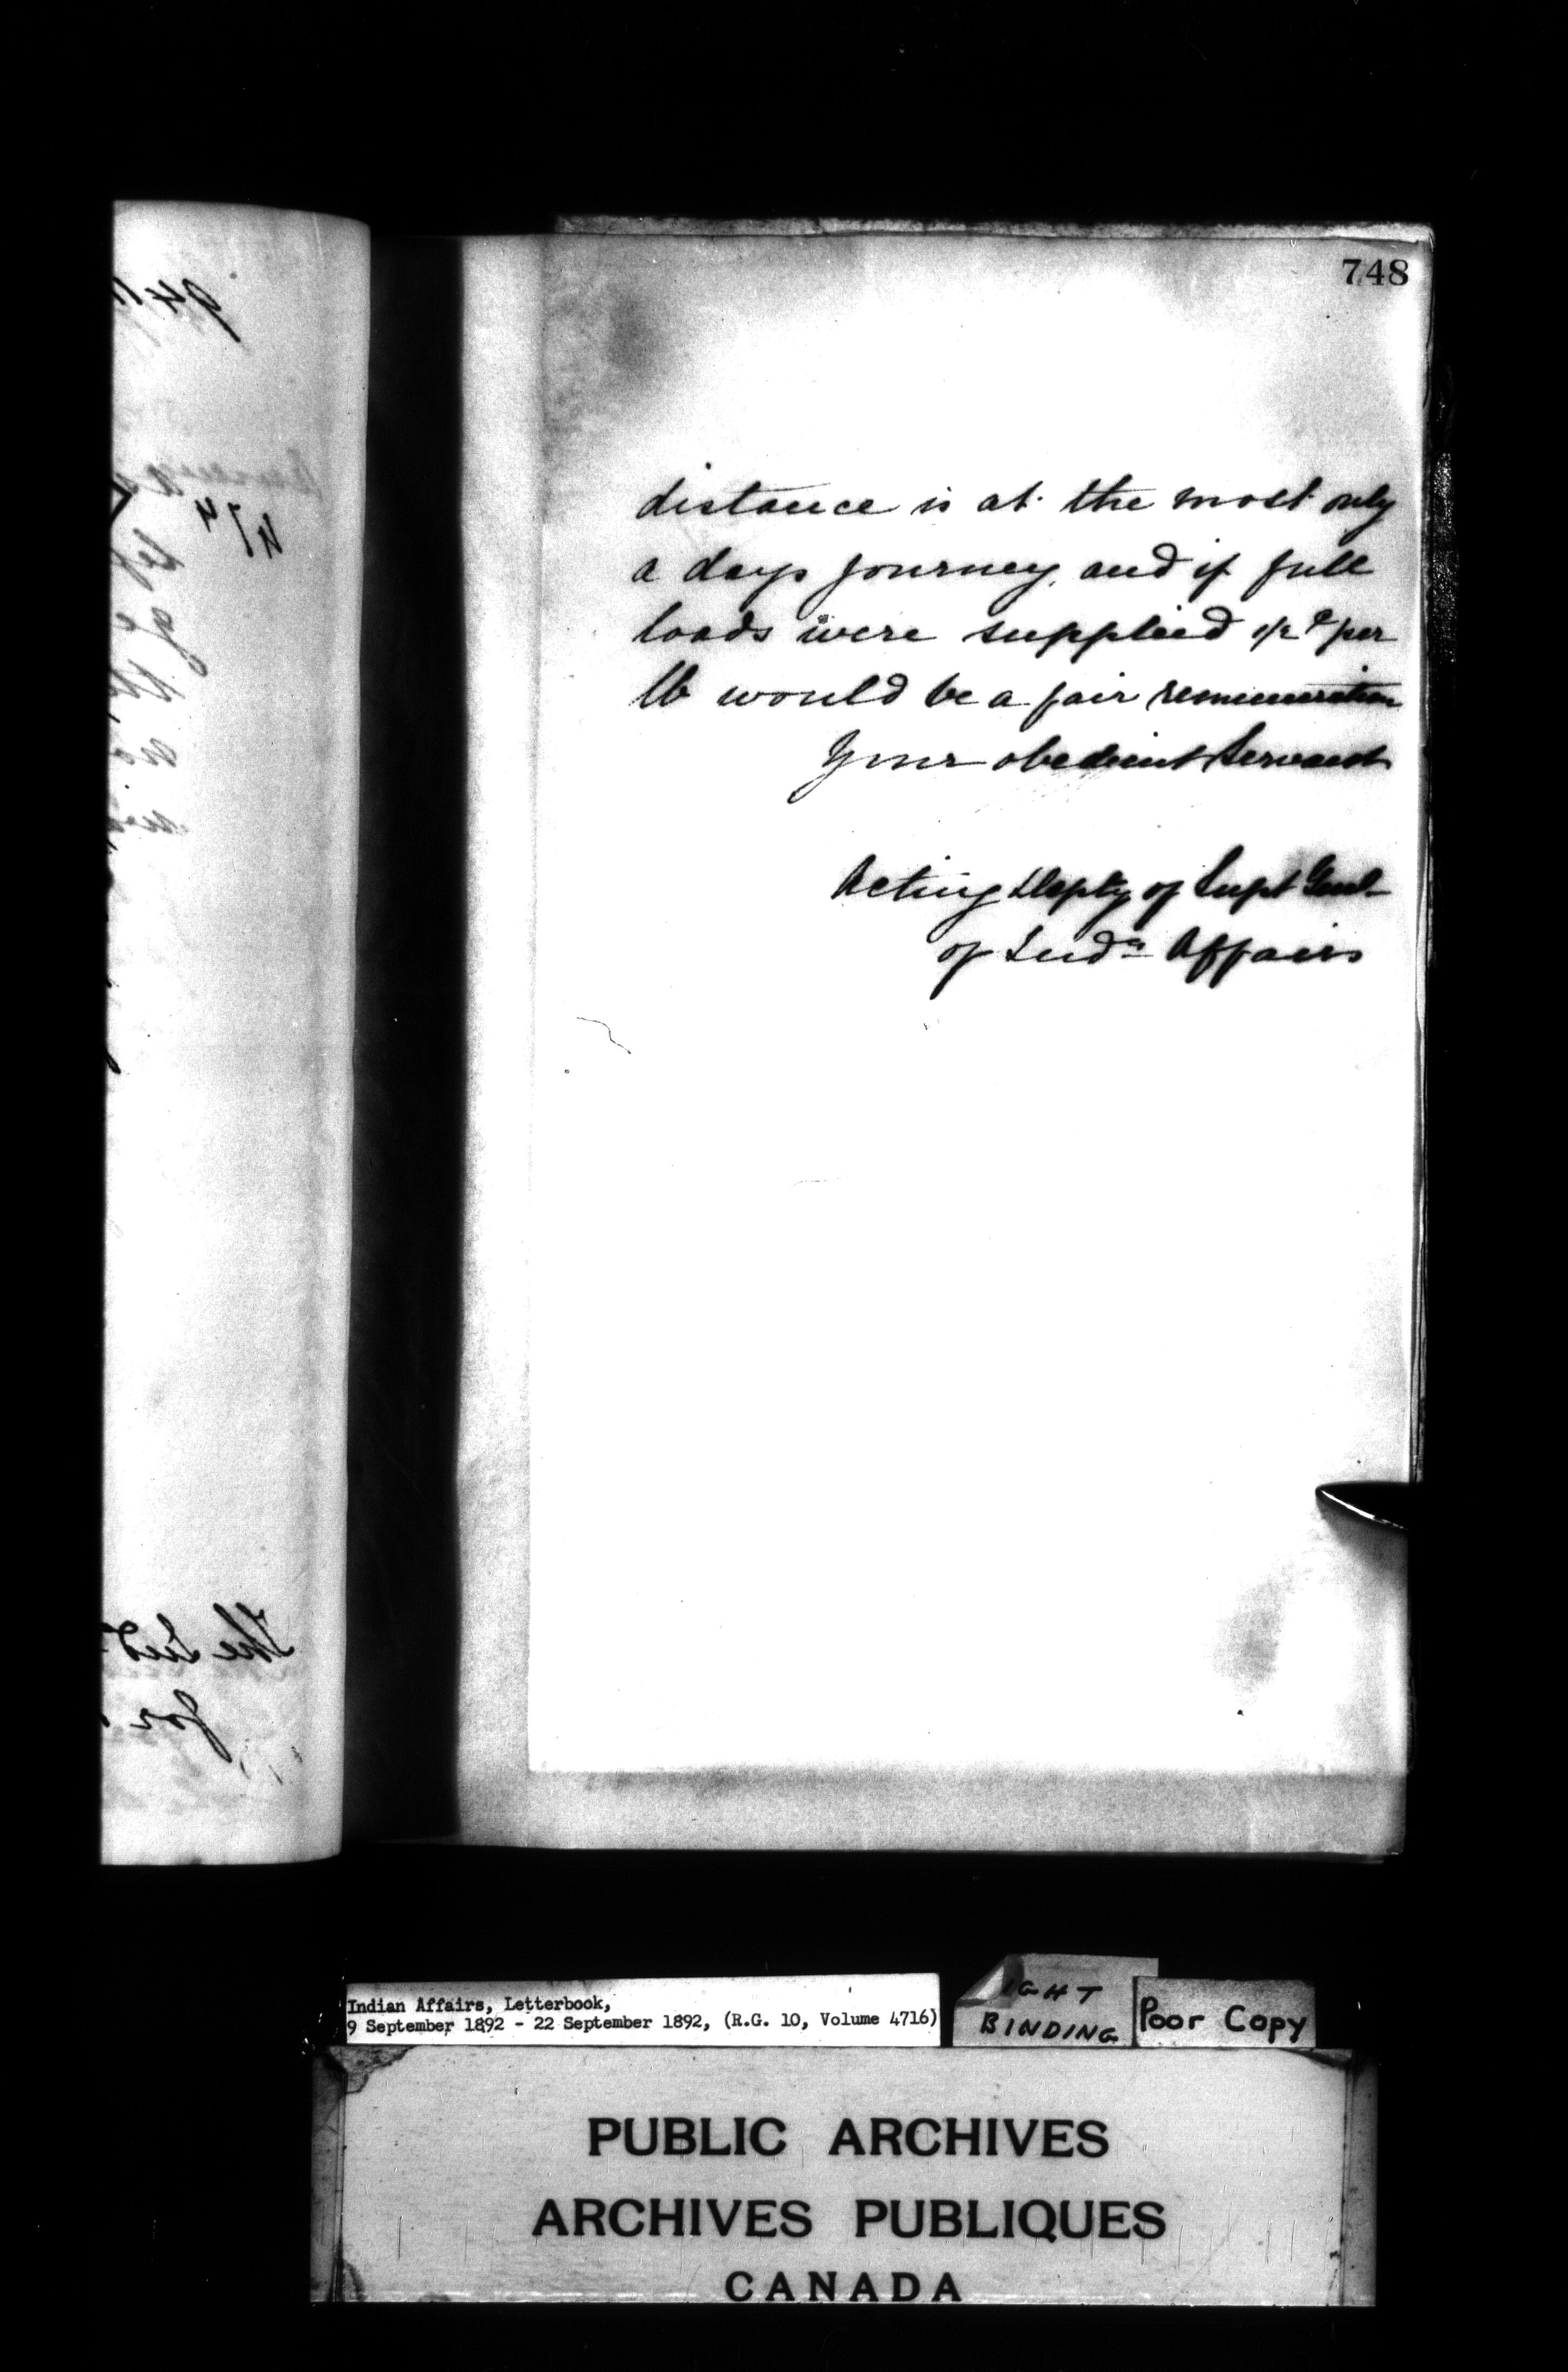 748
distance is at the most only
a days journey, and if full
loads were supplied 1/2 c per
lb would be a fair remuneration
Your obedient Servant
Acting Depty of Supt Genl
of Indn Affairs
474
The Ind
for
Indian Affairs, Letterbook,
9 September 1892 - 22 September 1892, (R.G. 10, Volume 4716)
IGHT
BINDING
Poor Copy
PUBLIC ARCHIVES
ARCHIVES PUBLIQUES
CANADA